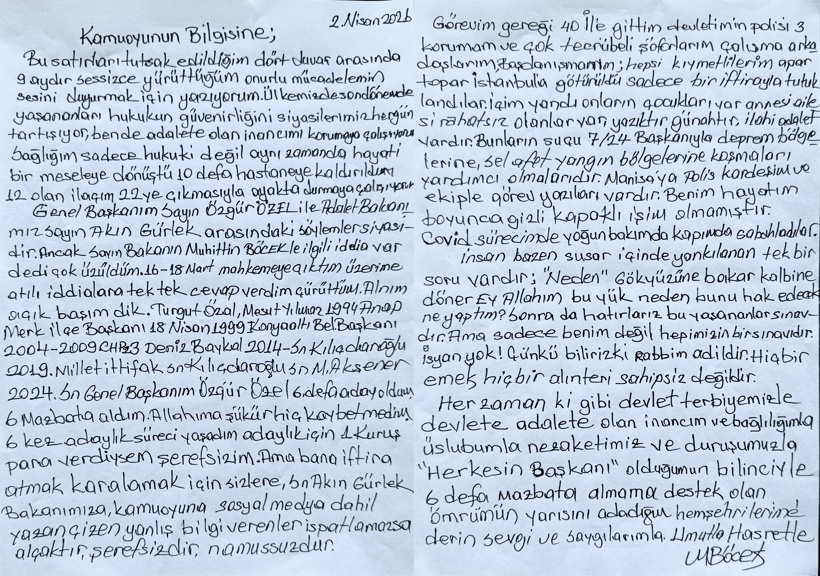 2.Nisan 2026
Kamuoyunun Bilgisine;
Bu satırları tutsak edildiğim dört duvar arasında
9 aydır sessizce yürüttüğüm onurlu mücadelemin
sesini duyurmak için yazıyorum. Ülkemizde son dönemde
yaşananları hukukun güvenirliğini siyasilerimiz hergün
tartışıyor, bende adalete olan inancımı korumaya çalışıyorum
Sağlığım sadece hukuki değil aynı zamanda hayati
bir meseleye dönüştü 10 defa hastaneye kaldırıldım
12 olan ilacım 22 ye çıkmasıyla ayakta durmaya çalışıyorum
Genel Başkanım Sayın Özgür ÖZEL ile Adalet Bakanı
mız Sayın Akın Gürlek arasındaki söylemler siyasi-
dir. Ancak Sayın Bakanın Muhittin BÖCEKle ilgili iddia var
dedi çok üzüldüm. 16-18 Mart mahkemeye çıktım üzerime
atılı iddialara tek tek cevap verdim çürüttüm. Alnım
açık başım dik. Turgut Özal, Mesut Yılmaz 1994 Anap
Merk ilçe Başkanı 18 Nisan 1999 Konyaaltı Bel Başkanı
2004-2009 CHP Deniz Baykal 2014-Sn Kılıçdaroğlu
2019. Millet ittifak Sn Kılıçdaroğlu Sn M.Akşener
2024. Sn Genel Başkanım Özgür Özel 6 defa aday oldum
6 Mazbata aldım. Allahıma şükür hiç kaybetmedim
6 kez adaylık süreci yaşadım adaylık için 1 Kuruş
para verdiysem şerefsizim. Ama bana iftira
atmak karalamak için sizlere, Sn Akın Gürlek
Bakanımıza, kamuoyuna sosyal medya dahil
yazan çizen yanlış bilgi verenler ispatlamazsa
alçaktır, şerefsizdir, namussuzdur.
Görevim gereği 40 İl'e gittim devletimin polisi 3
korumam ve çok tecrübeli şoförlarım çalışma arka
daşlarım, Başdanışmanım; hepsi kıymetlilerim apar
topar İstanbula götürüldü sadece bir iftirayla tutuk
landılar. içim yandı onların çocukları var annesi aile
si rahatsız olanlar var yazıktır günahtır, ilahi adalet
vardır. Bunların suçu 7/24 Başkanıyla deprem bölge
lerine, sel afet yangın bölgelerine koşmaları
yardımcı olmalarıdır. Manisa'ya Polis kardeşim ve
ekiple görev yazıları vardır. Benim hayatım
boyunca gizli kapaklı işim olmamıştır.
Covid sürecinde yoğun bakımda kapımda sabahladılar.
insan bazen susar içinde yankılanan tek bir
soru vardır; "Neden" Gökyüzüne bakar kalbine
döner Ey Allahım bu yük neden bunu hak edecek
ne yaptım? Sonra da hatırlarız bu yaşananlar sınav-
dır. Ama sadece benim değil hepimizin bir sınavıdır.
isyan yok! Çünkü bilirizki Rabbim adildir. Hiçbir
emek hiçbir alınteri sahipsiz değildir.
Her zaman ki gibi devlet terbiyemizle
devlete adalete olan inancım ve bağlılığımla
üslubumla nezaketimiz ve duruşumuzla
"Herkesin Başkanı" olduğumun bilinciyle
6 defa Mazbata almama destek olan
ömrümün yarısını adadığım hemşehrilerime
derin sevgi ve saygılarımla. Umutla Hasretle
MBöcek